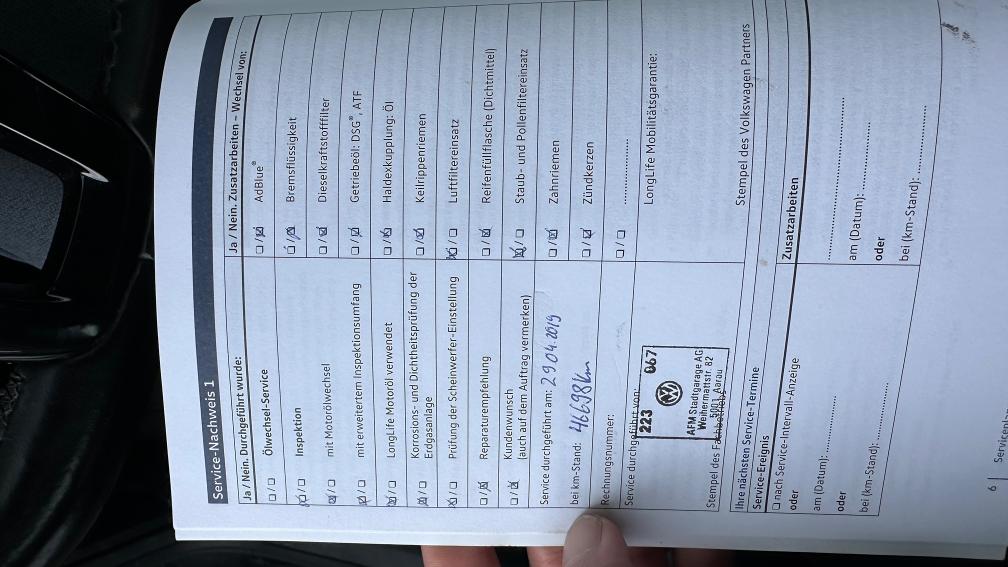 Service-Nachweis 1
Ja / Nein. Durchgeführt wurde:
☐ / ☐ Ölwechsel-Service
☒ / ☐ Inspektion
☒ / ☐ mit Motorölwechsel
☒ / ☐ mit erweitertem Inspektionsumfang
☒ / ☐ LongLife Motoröl verwendet
☐ / ☒ Korrosions- und Dichtheitsprüfung der
Erdgasanlage
☒ / ☐ Prüfung der Scheinwerfer-Einstellung
☐ / ☒ Reparaturempfehlung
☐ / ☒ Kundenwunsch
(auch auf dem Auftrag vermerken)
Service durchgeführt am: 29.04.2019
bei km-Stand: 46698 km
Rechnungsnummer:
Service durchgeführt von:
223 067
AFM Stadtgarage AG
Weihermattstr. 82
5001 Aarau
Stempel des
Ja / Nein. Zusatzarbeiten – Wechsel von:
☐ / ☒ AdBlue®
☐ / ☒ Bremsflüssigkeit
☐ / ☒ Dieselkraftstofffilter
☐ / ☒ Getriebeöl: DSG®, ATF
☐ / ☒ Haldexkupplung: Öl
☐ / ☒ Keilrippenriemen
☒ / ☐ Luftfiltereinsatz
☐ / ☒ Reifenfüllflasche (Dichtmittel)
☒ / ☐ Staub- und Pollenfiltereinsatz
☐ / ☒ Zahnriemen
☐ / ☒ Zündkerzen
☐ / ☐ ....................
LongLife Mobilitätsgarantie:
Stempel des Volkswagen Partners
Ihre nächsten Service-Termine
Service-Ereignis
☐ nach Service-Intervall-Anzeige
oder
am (Datum): ....................
oder
bei (km-Stand): ....................
Zusatzarbeiten
....................
am (Datum): ....................
oder
bei (km-Stand): ....................
6 |